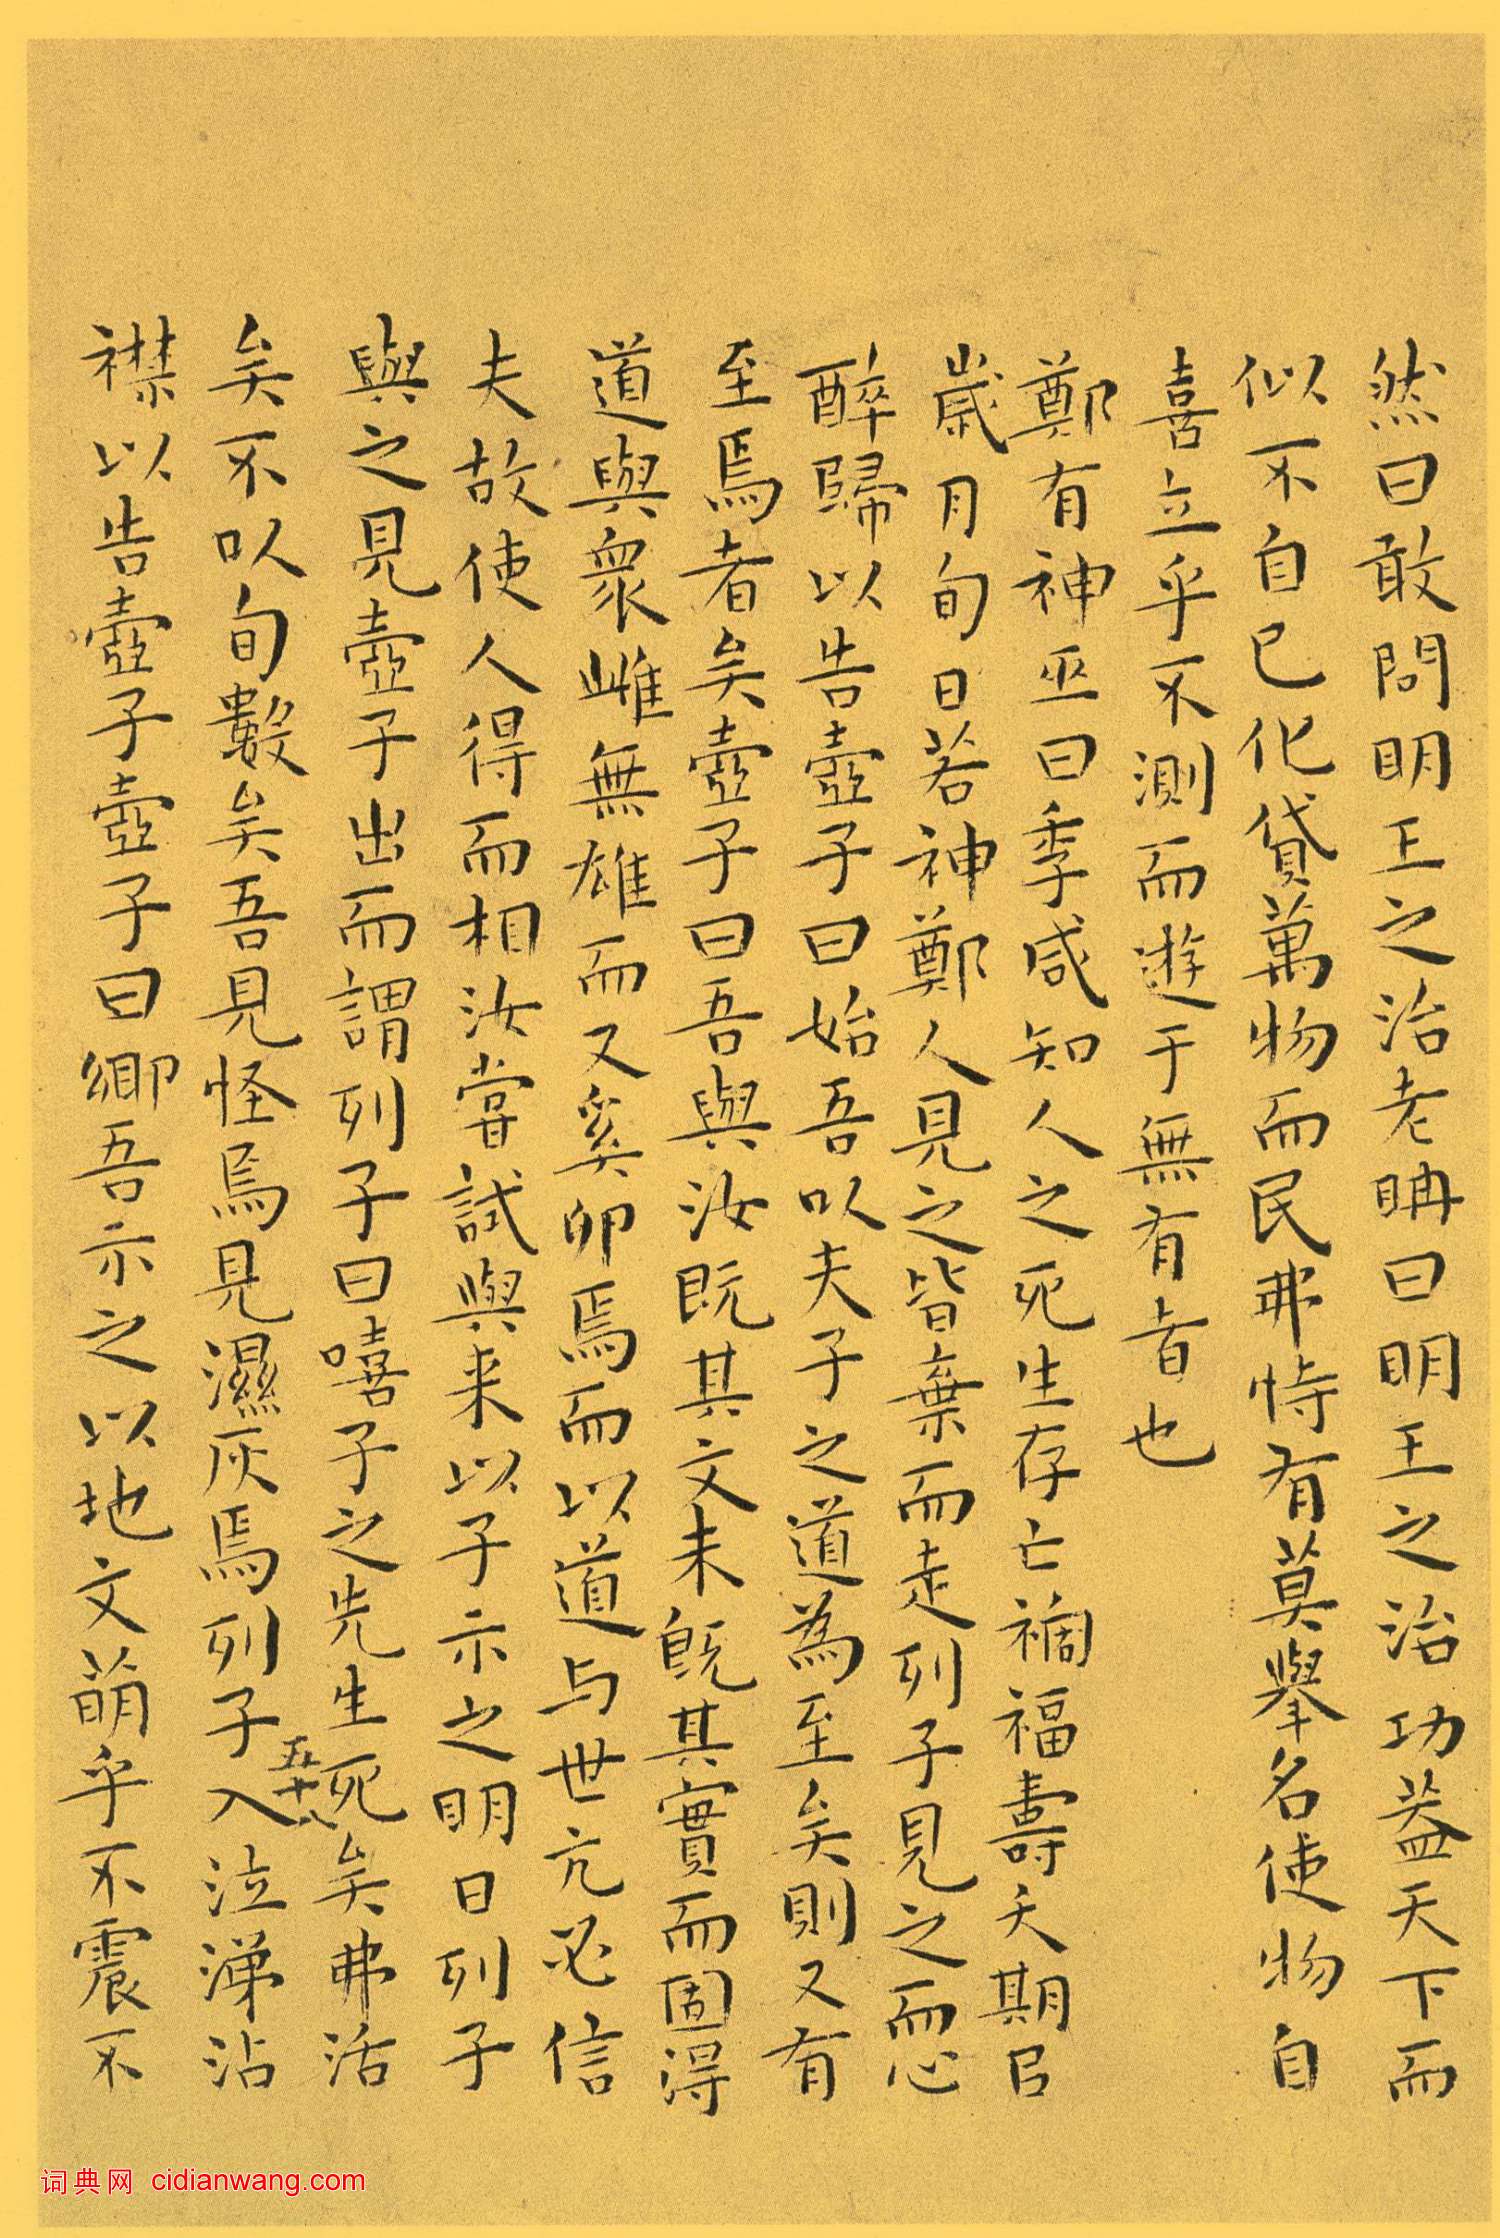 然曰敢問明王之治老聃曰明王之治功蓋天下而
似不自已化貸萬物而民弗恃有莫舉名使物自
喜立乎不測而遊于無有者也
鄭有神巫曰季咸知人之死生存亡禍福壽夭期㠯
歲月旬日若神鄭人見之皆棄而走列子見之而心
醉歸以告壺子曰始吾以夫子之道為至矣則又有
至焉者矣壺子曰吾與汝既其文未既其實而固得
道與衆雌無雄而又奚卵焉而以道与世亢必信
夫故使人得而相汝嘗試與来以子示之明日列子
與之見壺子出而謂列子曰嘻子之先生死矣弗活
五十八
矣不以旬數矣吾見怪焉見濕灰焉列子入泣涕沾
襟以告壺子壺子曰鄉吾示之以地文萌乎不震不
词典网 cidianwang.com